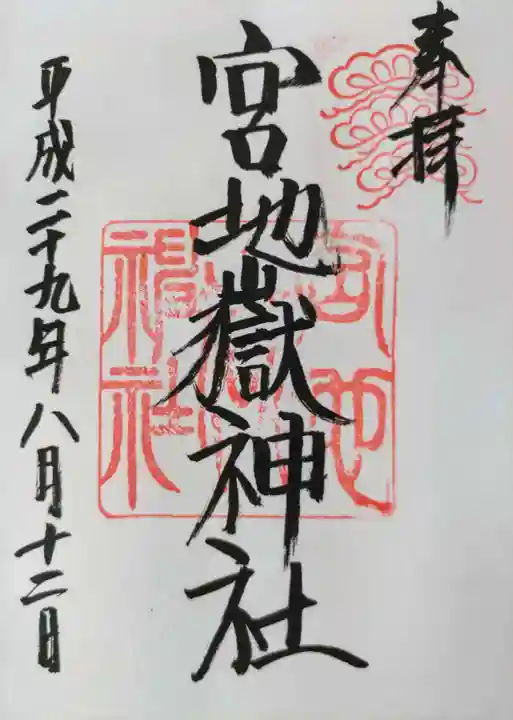 奉拝
宮地嶽神社
平成二十九年八月十二日
宮地
神社